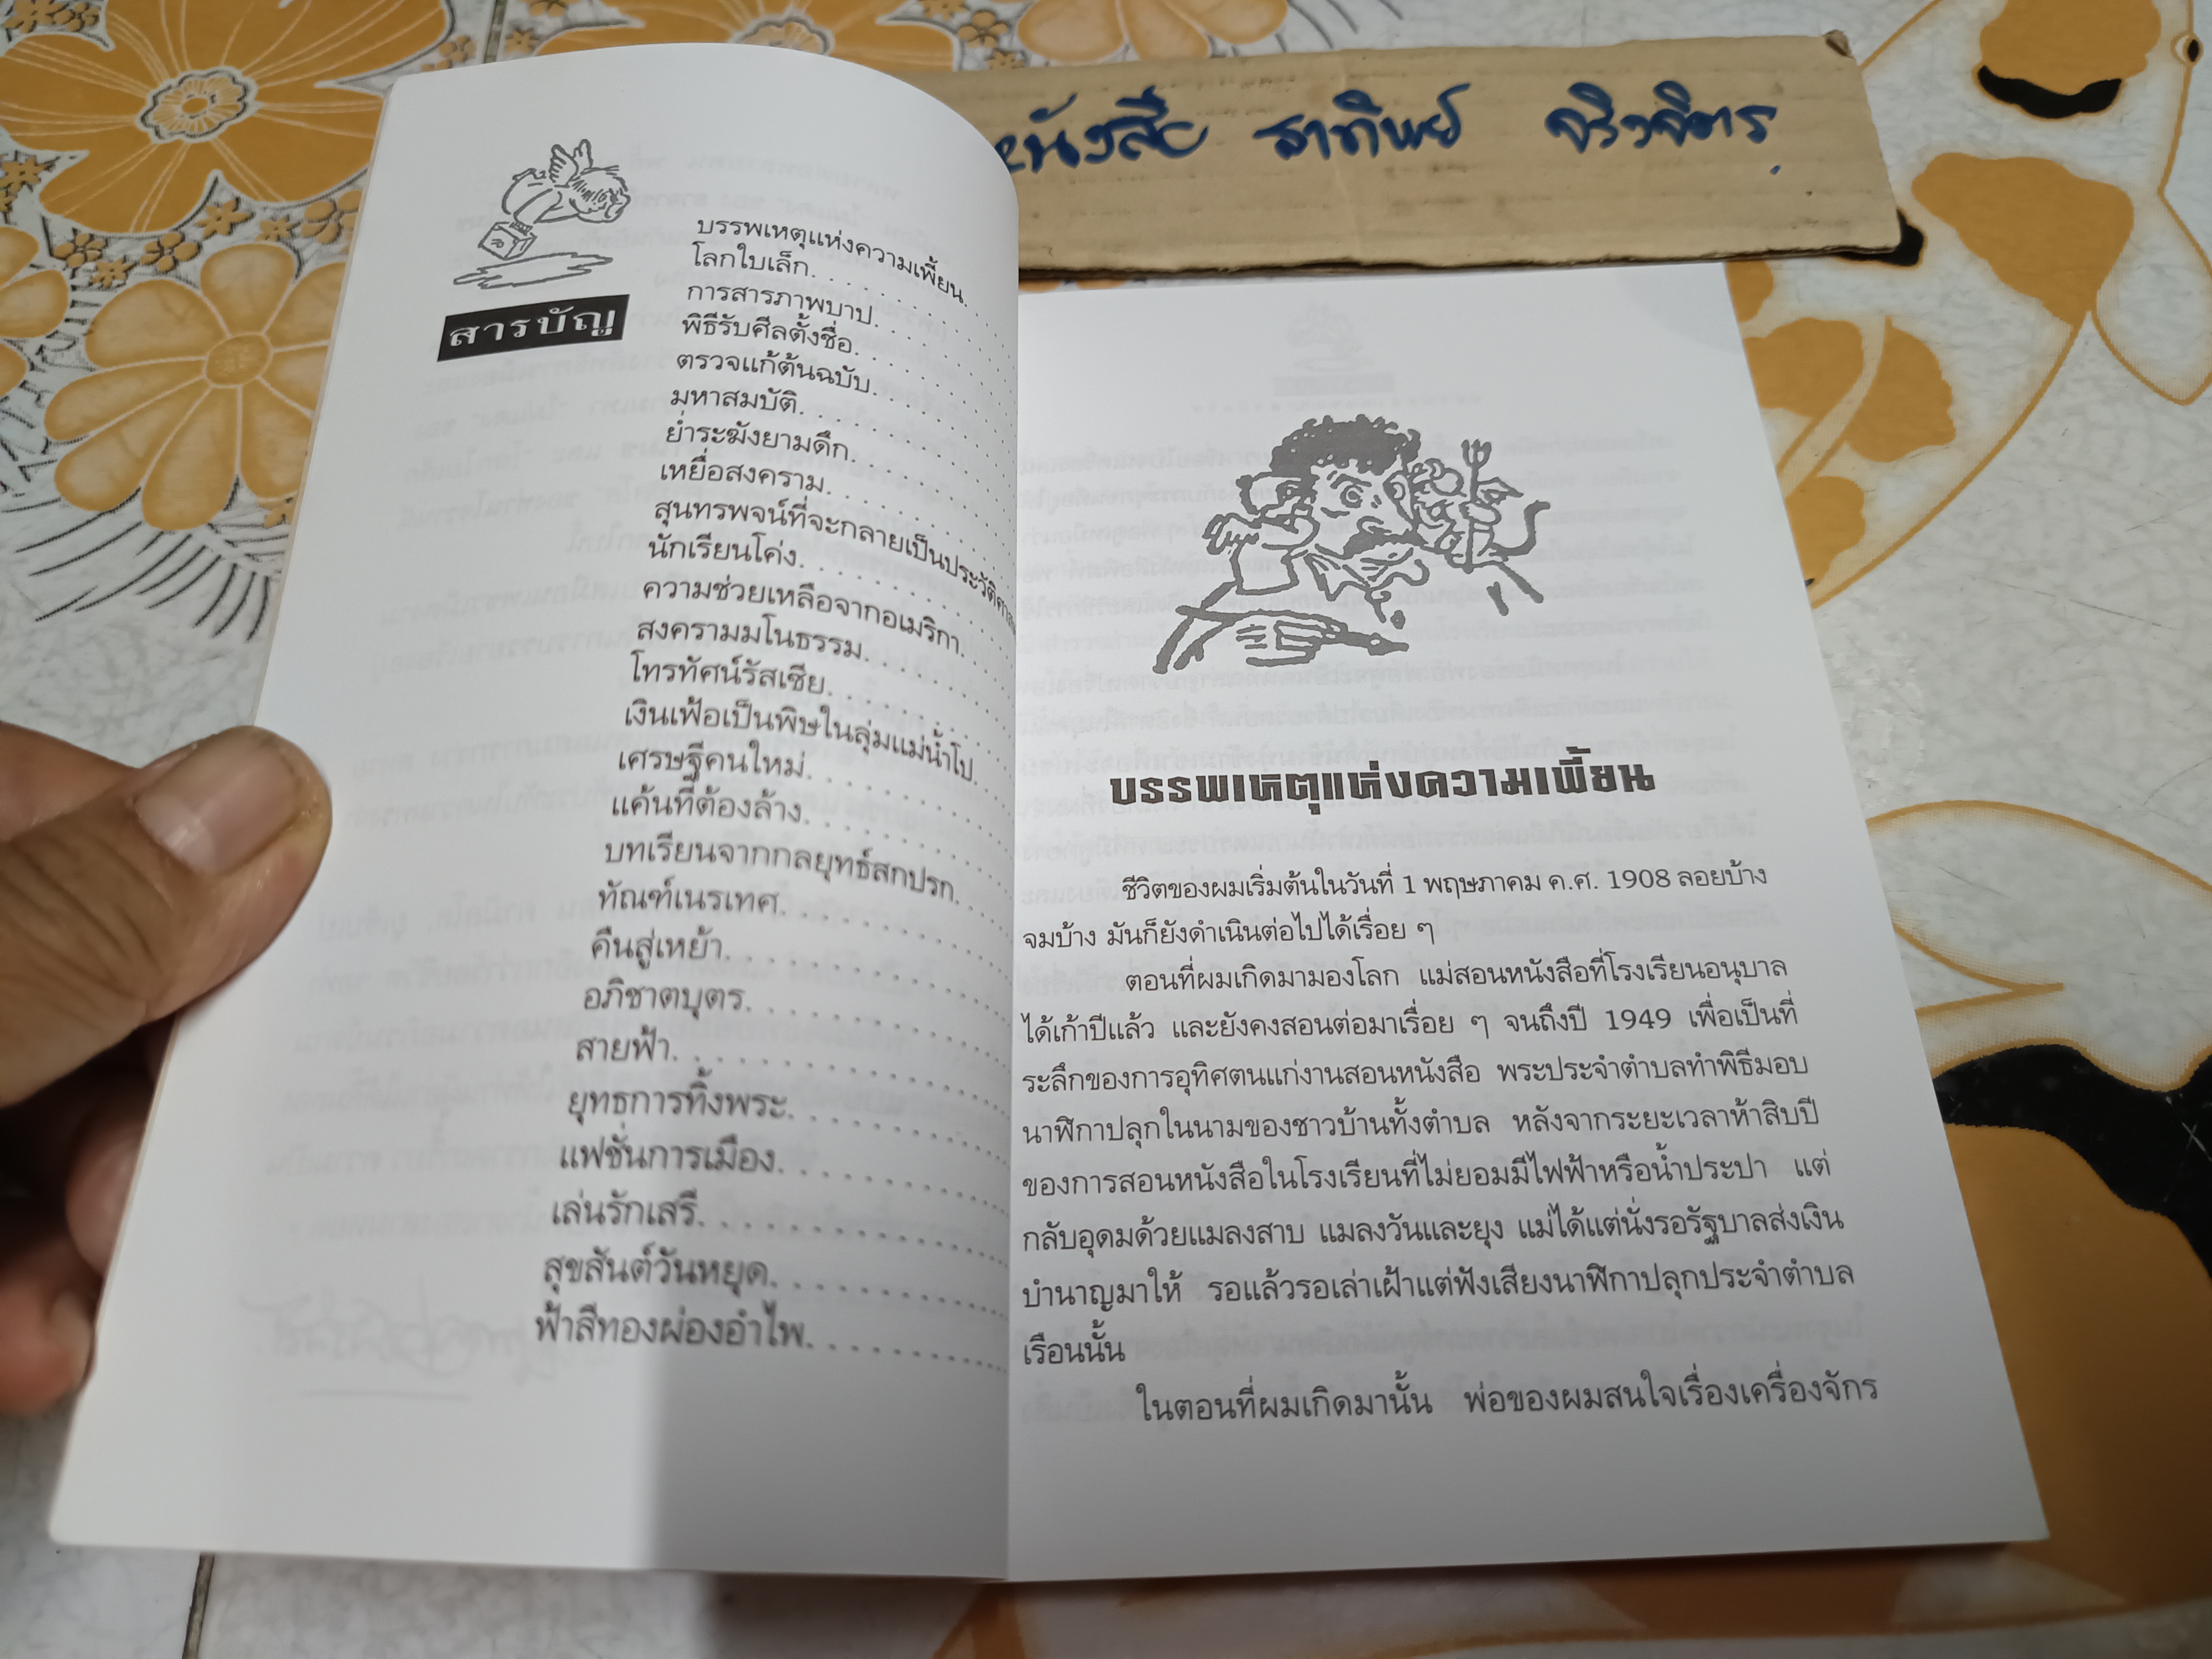 หนังสือ ธาทิพย์ จริงจิตร
สารบัญ
บรรพเหตุแห่งความเพี้ยน.
โลกใบเล็ก.
การสารภาพบาป.
พิธีรับศีลตั้งชื่อ.
ตรวจแก้ต้นฉบับ.
มหาสมบัติ.
ย่ำระฆังยามดึก.
เหยื่อสงคราม.
สุนทรพจน์ที่จะกลายเป็นประวัติศาส
นักเรียนโค่ง.
ความช่วยเหลือจากอเมริกา.
สงครามมโนธรรม.
โทรทัศน์รัสเซีย.
เงินเฟ้อเป็นพิษในลุ่มแม่น้ำโป.
เศรษฐีคนใหม่.
แค้นที่ต้องล้าง.
บทเรียนจากกลยุทธ์สกปรก.
ทัณฑ์เนรเทศ.
คืนสู่เหย้า.
อภิชาตบุตร.
สายฟ้า.
ยุทธการทิ้งพระ.
แฟชั่นการเมือง.
เล่นรักเสรี.
สุขสันต์วันหยุด.
ฟ้าสีทองผ่องอำไพ.
บรรพเหตุแห่งความเพี้ยน
ชีวิตของผมเริ่มต้นในวันที่ 1 พฤษภาคม ค.ศ. 1908 ลอยบ้าง
จมบ้าง มันก็ยังดำเนินต่อไปได้เรื่อย ๆ
ตอนที่ผมเกิดมามองโลก แม่สอนหนังสือที่โรงเรียนอนุบาล
ได้เก้าปีแล้ว และยังคงสอนต่อมาเรื่อย ๆ จนถึงปี 1949 เพื่อเป็นที่
ระลึกของการอุทิศตนแก่งานสอนหนังสือ พระประจำตำบลทำพิธีมอบ
นาฬิกาปลุกในนามของชาวบ้านทั้งตำบล หลังจากระยะเวลาห้าสิบปี
ของการสอนหนังสือในโรงเรียนที่ไม่ยอมมีไฟฟ้าหรือน้ำประปา แต่
กลับอุดมด้วยแมลงสาบ แมลงวันและยุง แม่ได้แต่นั่งรอรัฐบาลส่งเงิน
บำนาญมาให้ รอแล้วรอเล่าเฝ้าแต่ฟังเสียงนาฬิกาปลุกประจำตำบล
เรือนนั้น
ในตอนที่ผมเกิดมานั้น พ่อของผมสนใจเรื่องเครื่องจักร